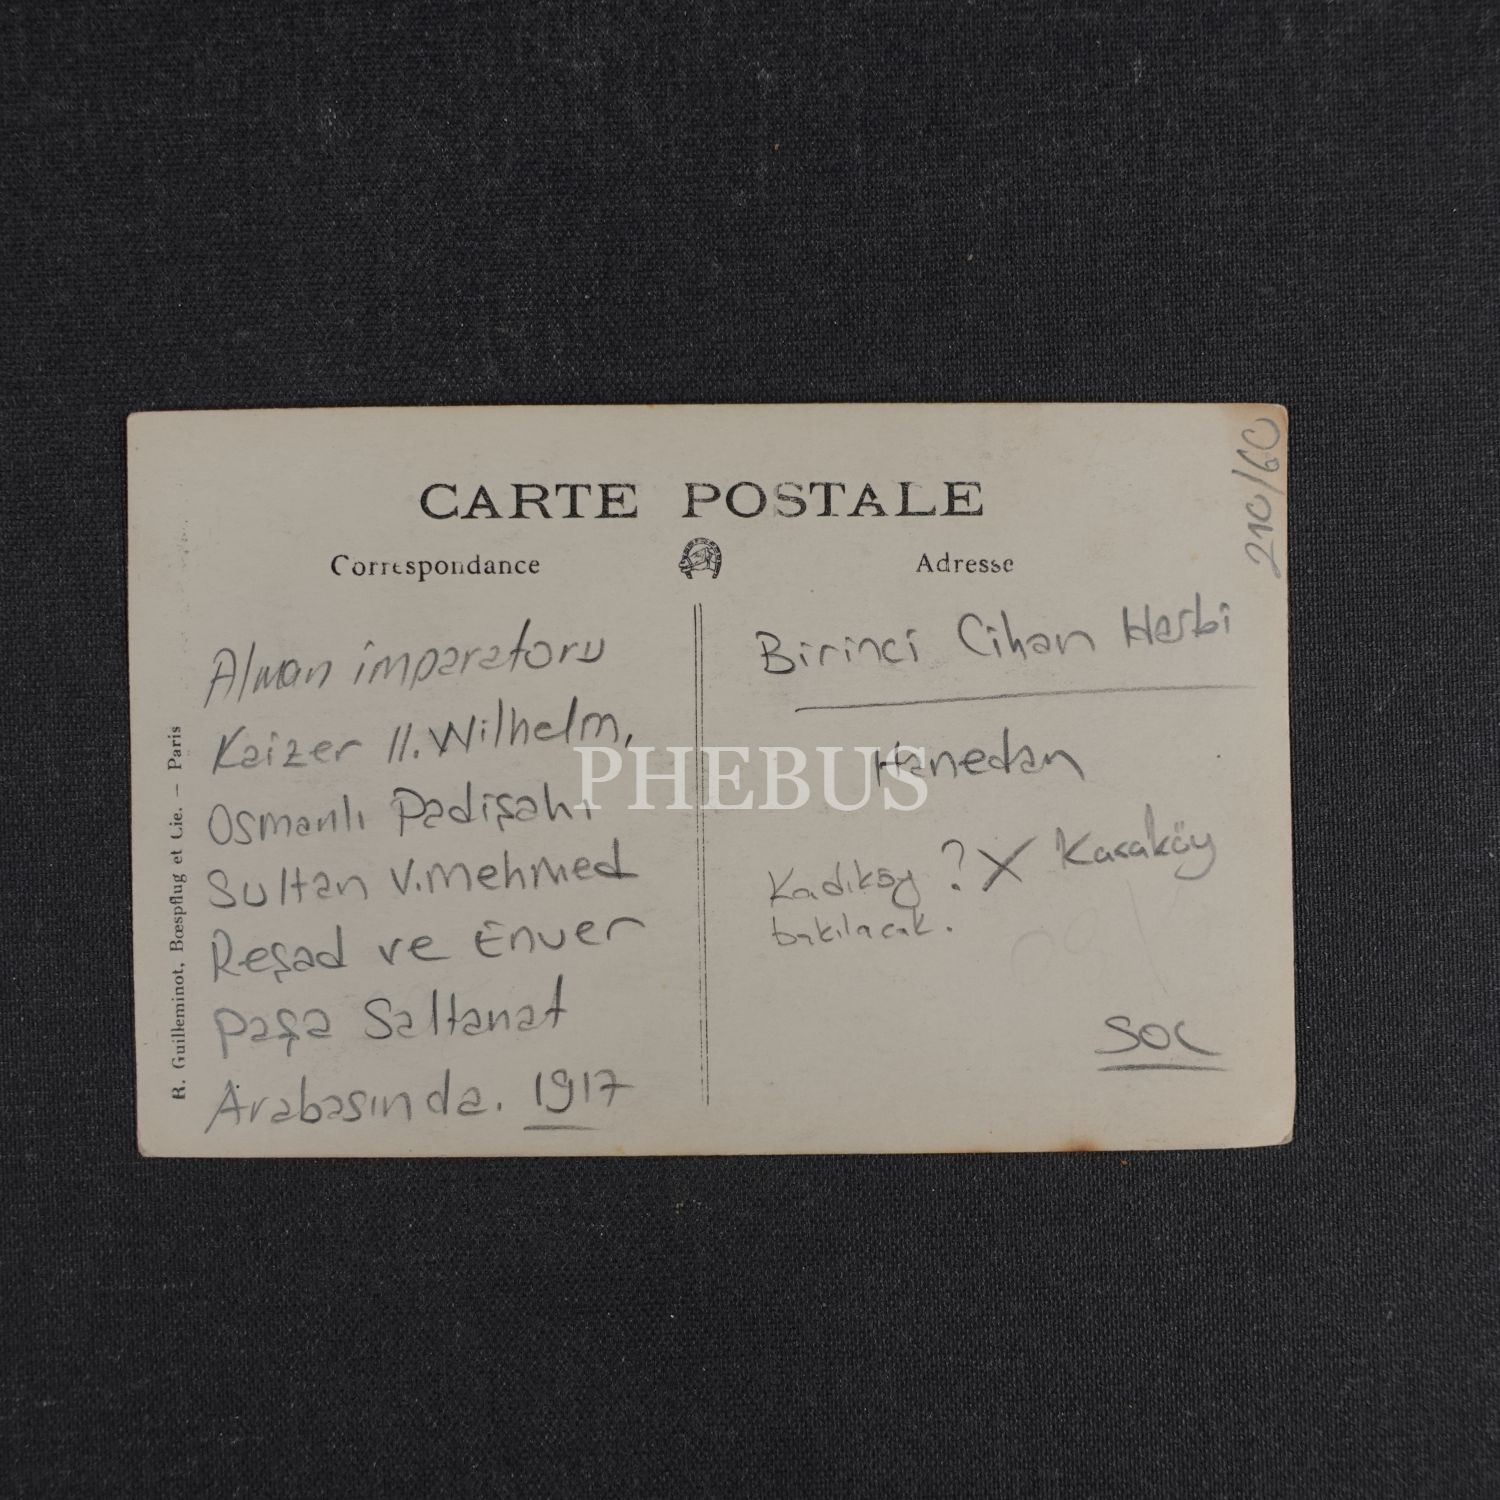 CARTE POSTALE
Correspondance
Adresse
210/60
Alman imparatoru
Kaizer II. Wilhelm,
Osmanlı Padişahı
Sultan V. Mehmed
Reşad ve Enver
Paşa Saltanat
Arabasında. 1917
Birinci Cihan Harbi
Hanedan
Kadıköy ? X Karaköy
bakılacak.
SOC
R. Guilleminot, Bœspflug et Cie. — Paris
PHEBUS